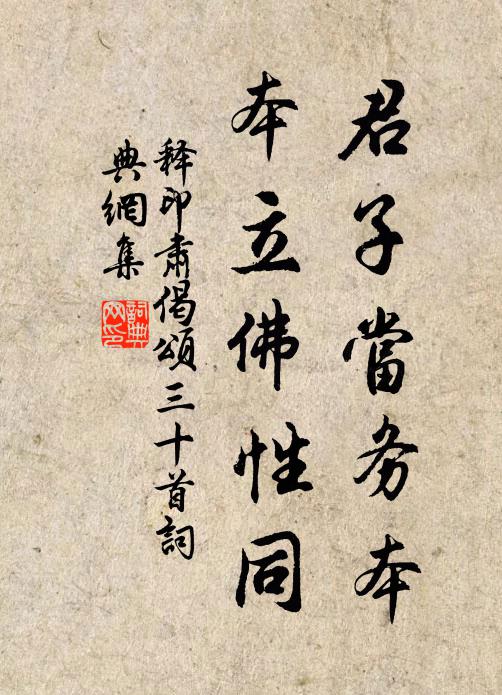 君子當务本
本立佛性同
释印肃偈頌三十首詞
典網集
詞典网印